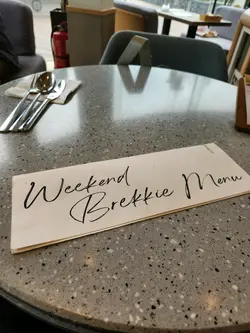 Weekend
Brekkie Menu